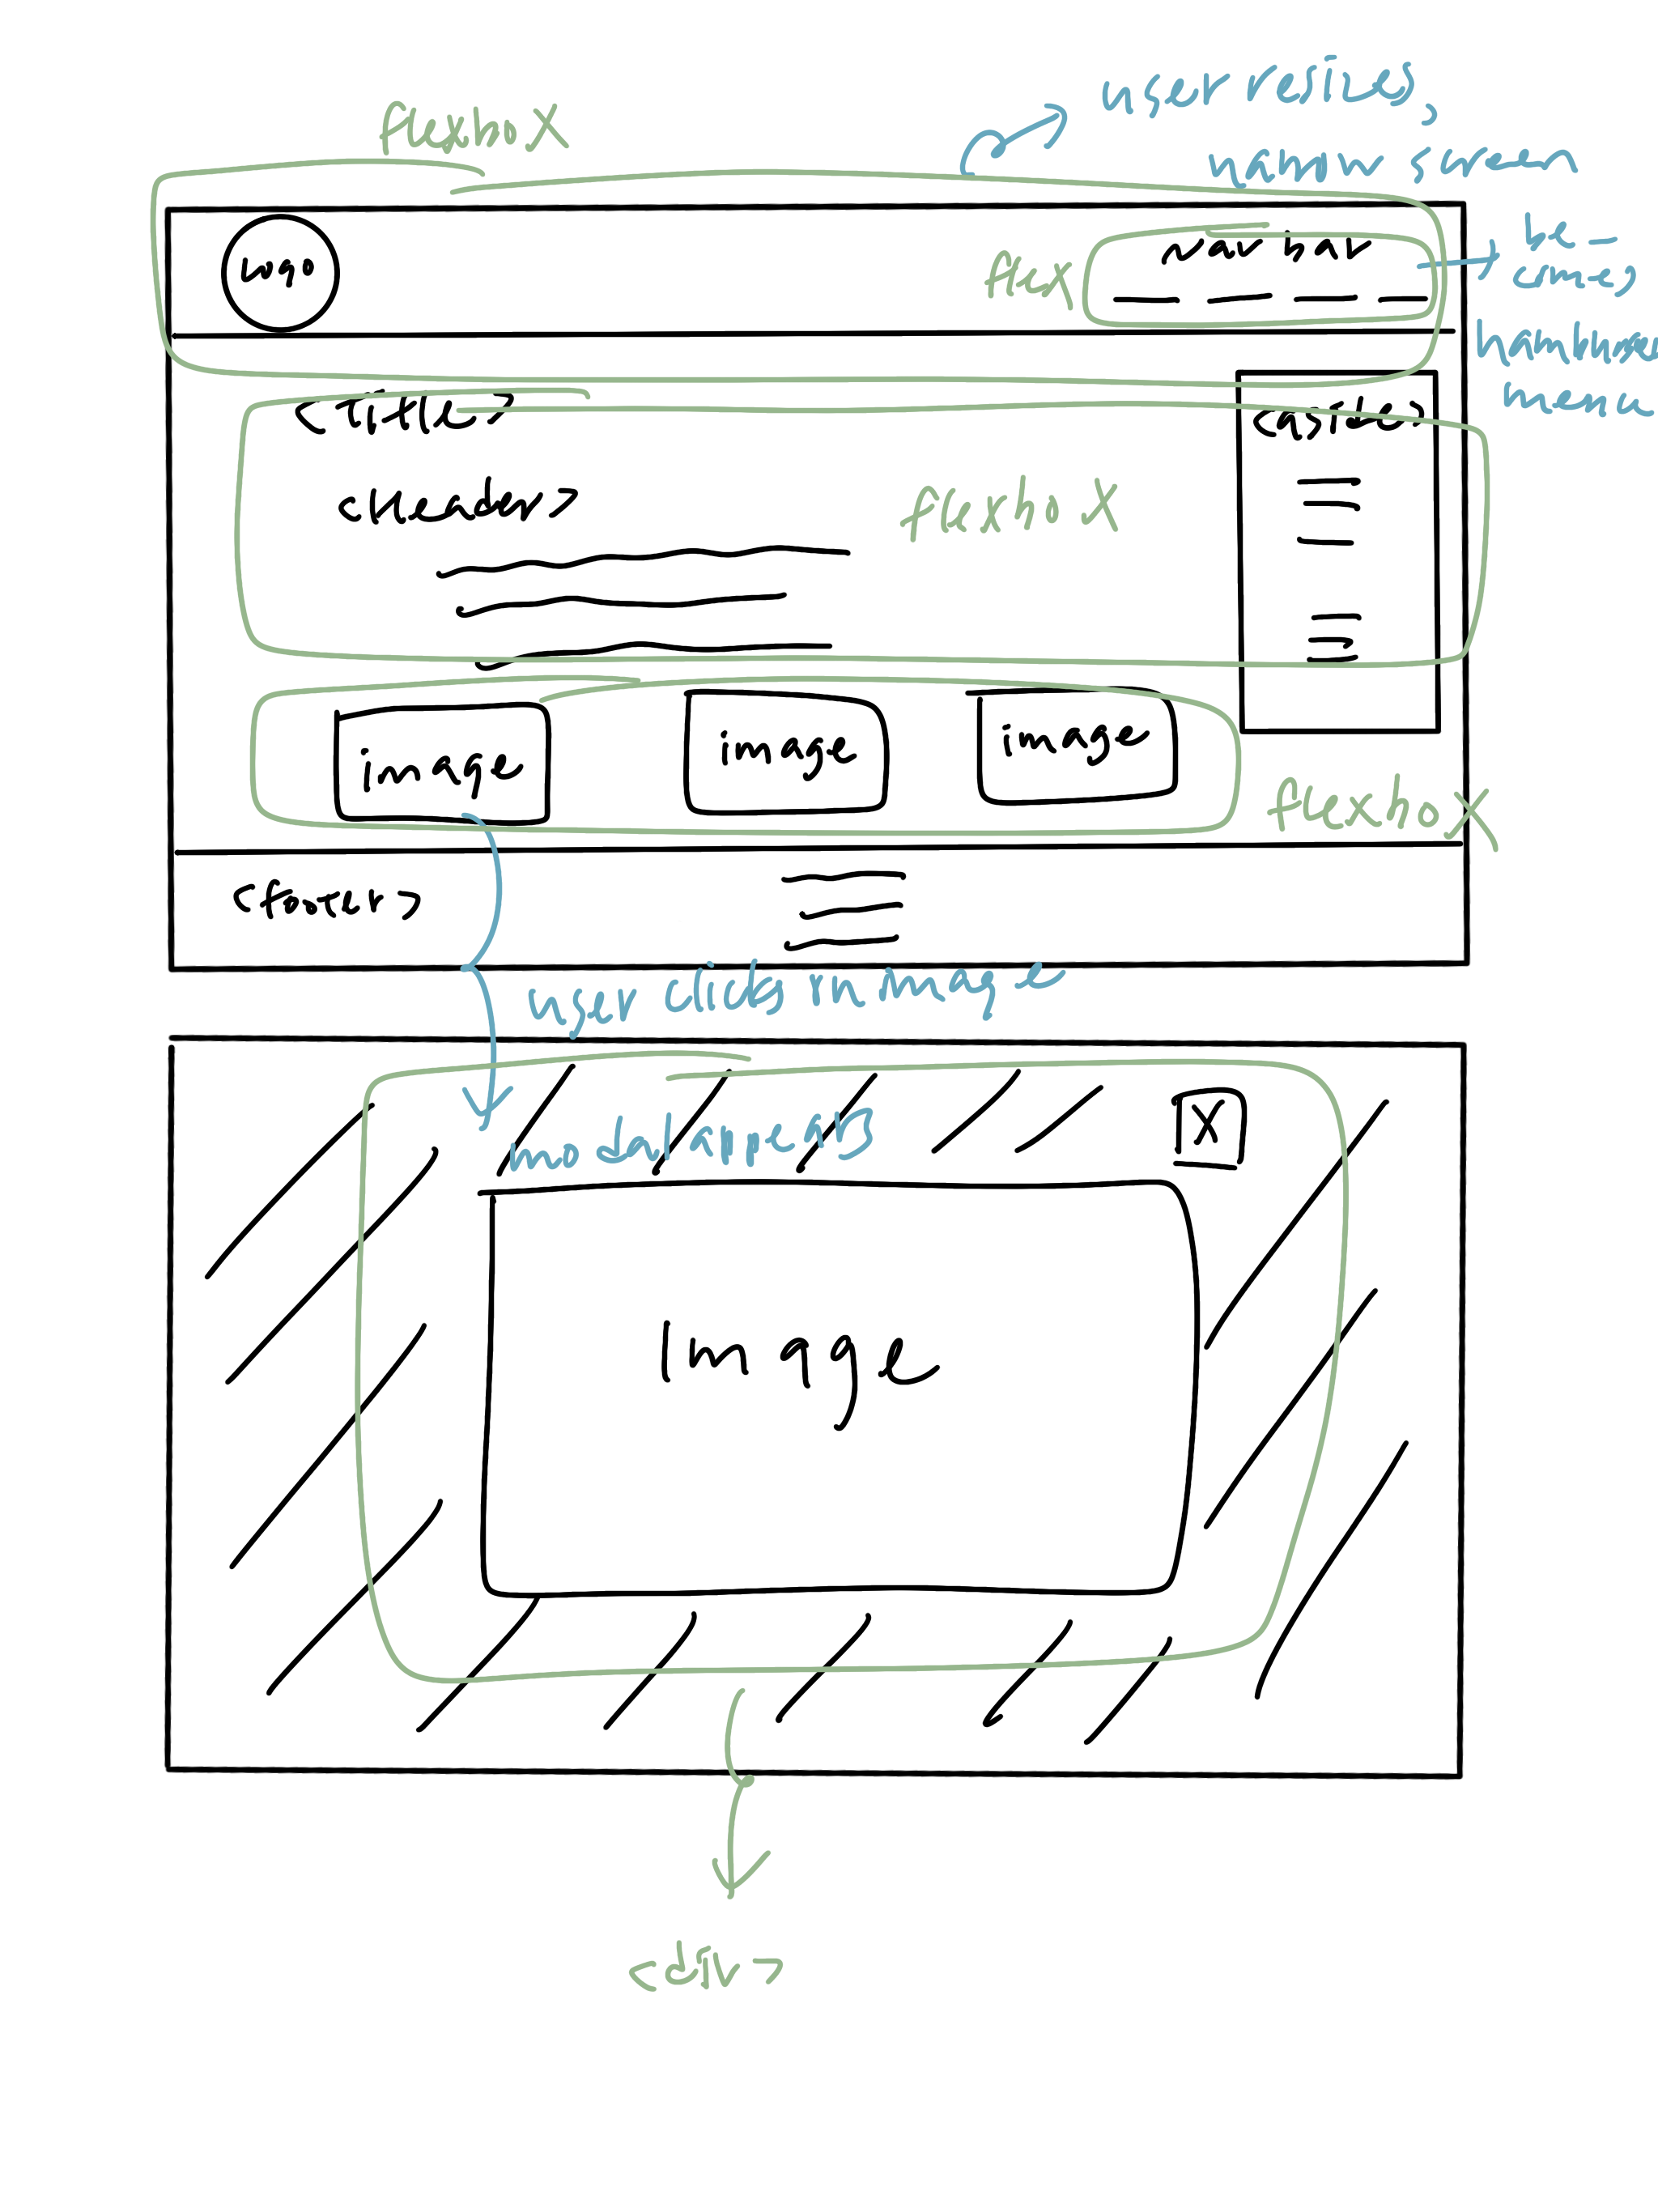 flexbox
user resizes,
window screen
logo
flex
nav bar
be-
comes
hamburger
menu
<title>
<aside>
<header>
flexbox
image
image
image
flexbox
<footer>
user clicks on image
modal appears
X
Image
<div>